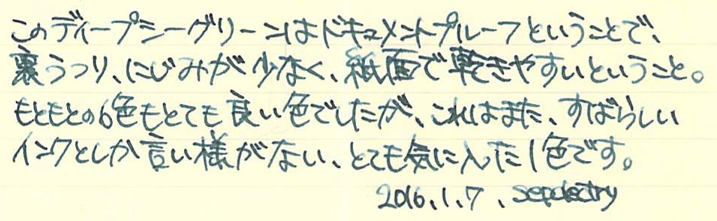 このディープシーグリーンはドキュメントプルーフということで、
裏うつり、にじみが少なく、紙面で乾きやすいということ。
もともとの6色もとても良い色でしたが、これはまた、すばらしい
インクとしか言い様がない、とても気に入った1色です。
2016.1.7、